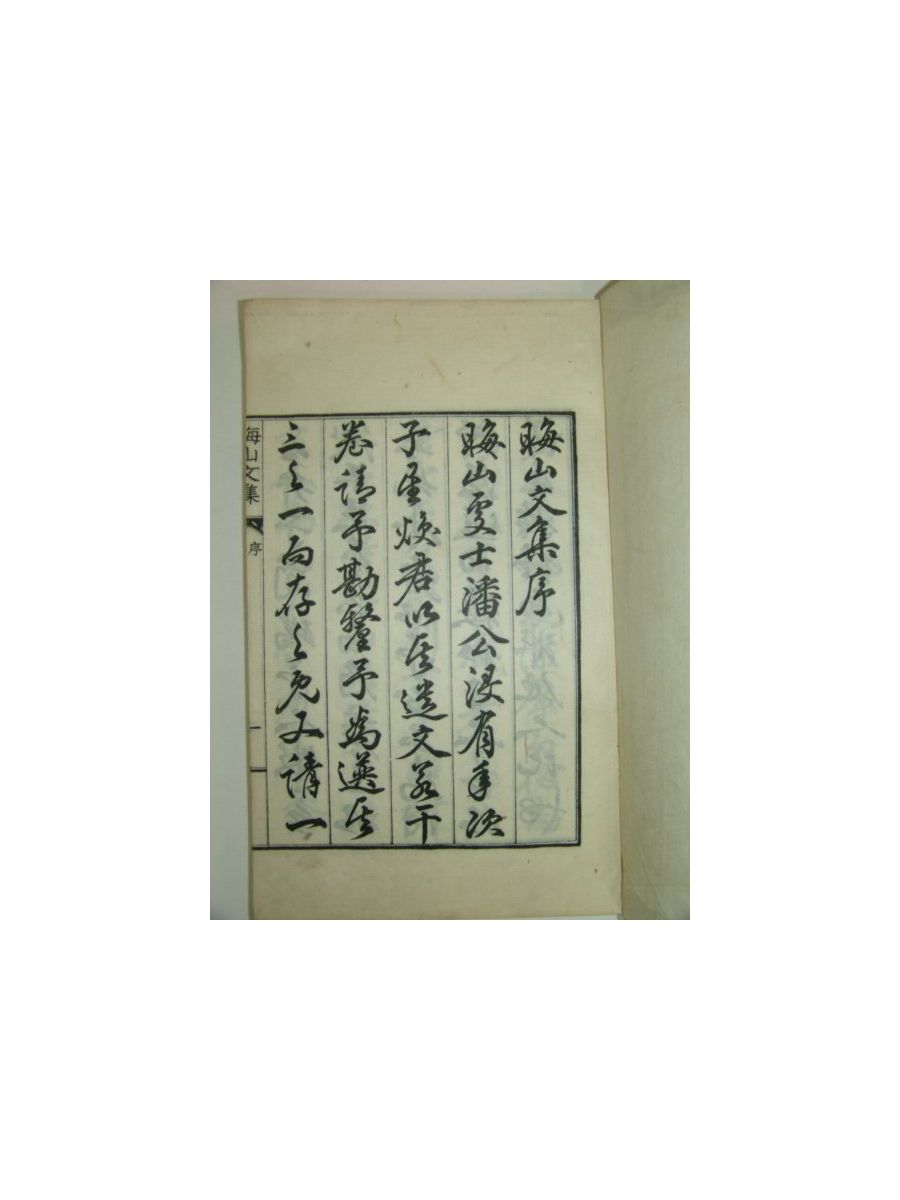 晦山文集序
晦山處士潘公沒有年次
子煥君以其遺文若干
卷請予勘釐予爲選其
三之一而存之既又請一
晦山文集
序
一